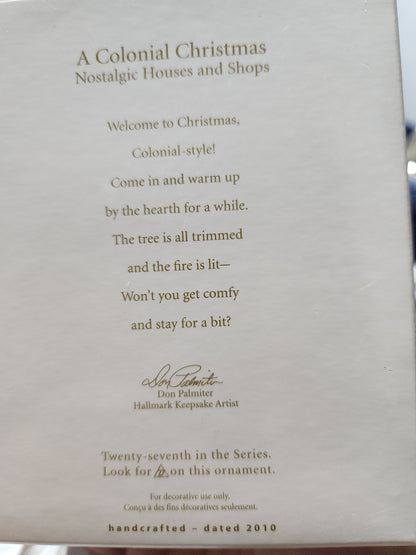 A Colonial Christmas
Nostalgic Houses and Shops
Welcome to Christmas,
Colonial-style!
Come in and warm up
by the hearth for a while.
The tree is all trimmed
and the fire is lit—
Won't you get comfy
and stay for a bit?
Don Palmiter
Don Palmiter
Hallmark Keepsake Artist
Twenty-seventh in the Series.
Look for on this ornament.
For decorative use only.
Conçu à des fins décoratives seulement.
handcrafted – dated 2010